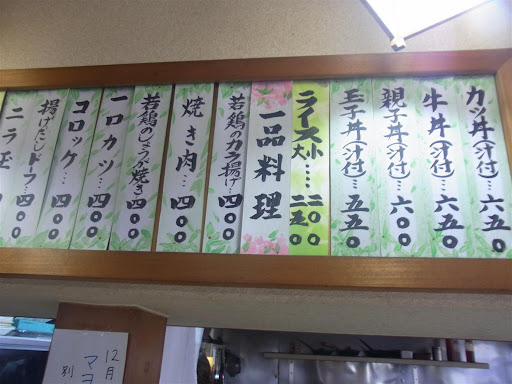 カツ丼(汁付)…六五〇
牛丼(汁付)…六五〇
親子丼(汁付)…六〇〇
玉子丼(汁付)…五五〇
ライス小…二〇〇
大…二五〇
一品料理
若鶏のカラ揚げ…四〇〇
焼き肉…四〇〇
若鶏のしょうが焼き四〇〇
一口カツ…四〇〇
コロッケ…四〇〇
揚げだしドーフ…四〇〇
ニラ玉
12月
マヨ
別